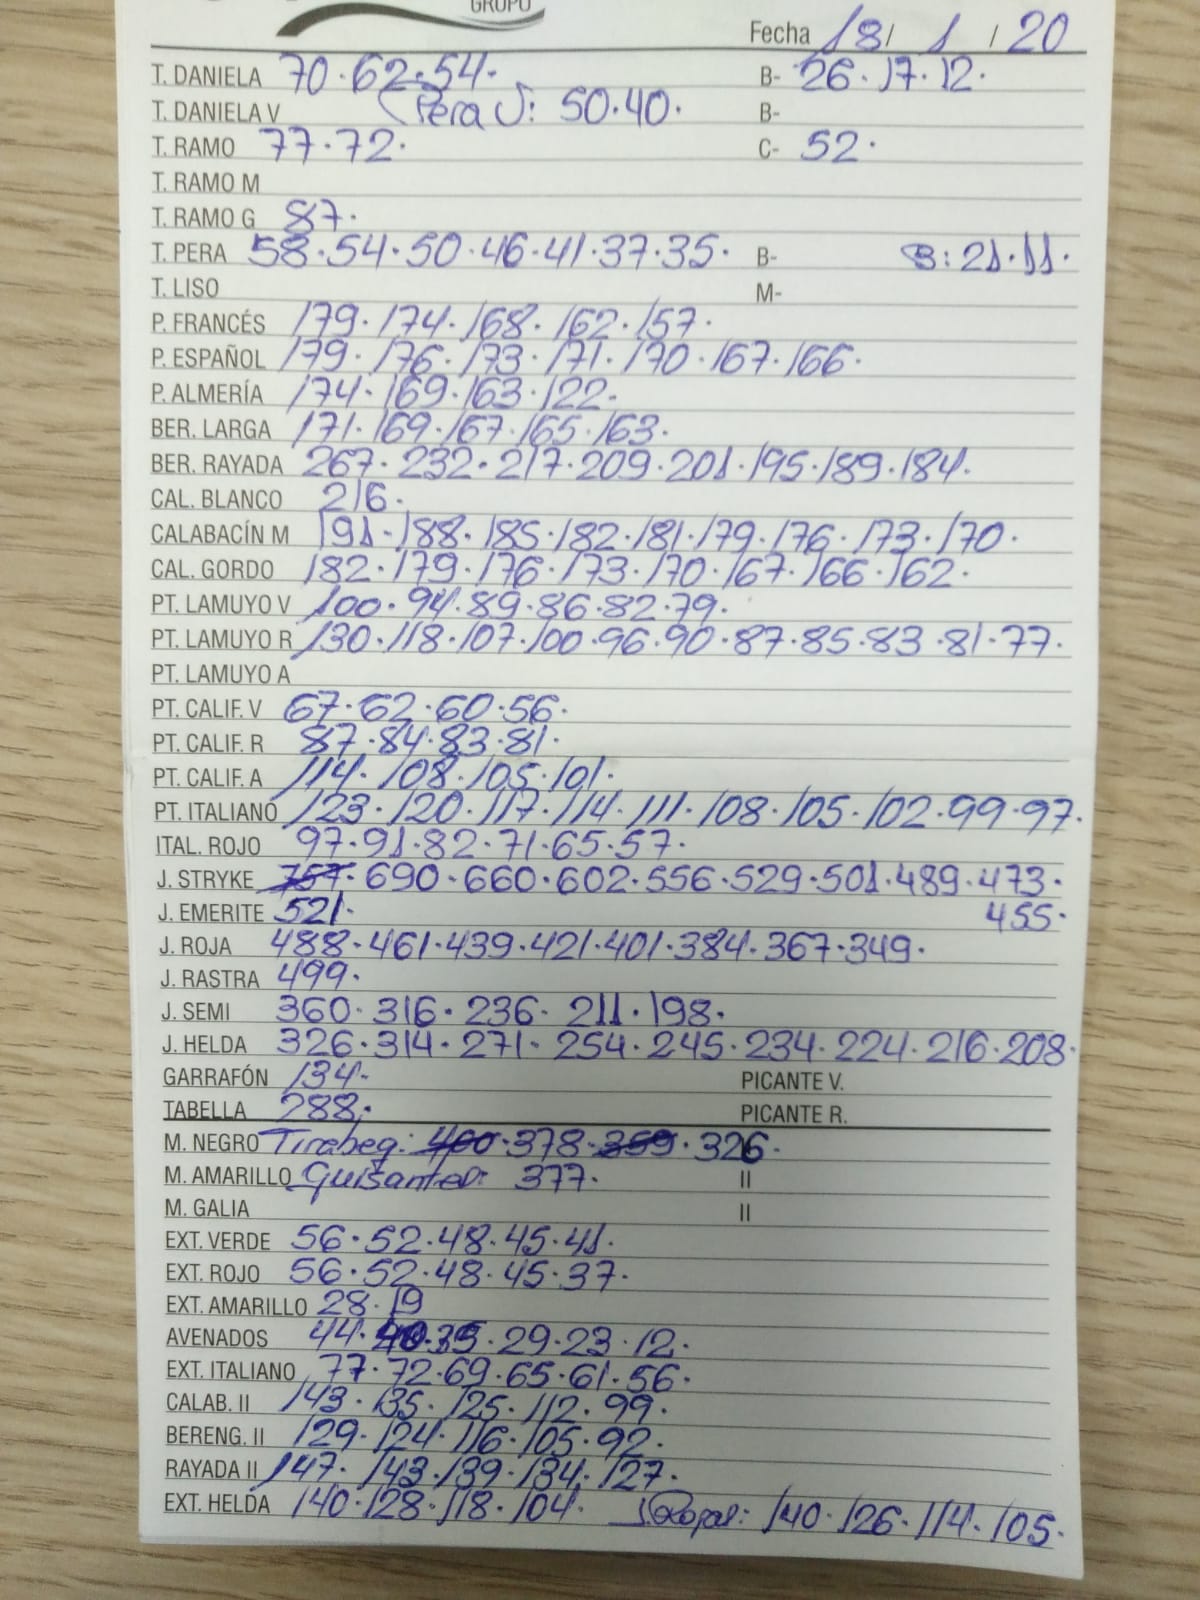 GRUPO
Fecha 18/ 1 / 20
T. DANIELA 70·62·54· B- 26·17·12·
T. DANIELA V (Pera J: 50·40· B-
T. RAMO 77·72· C- 52·
T. RAMO M
T. RAMO G 87·
T. PERA 58·54·50·46·41·37·35· B- B: 21·11·
T. LISO M-
P. FRANCÉS 179·174·168·162·157·
P. ESPAÑOL 179·176·173·171·170·167·166·
P. ALMERÍA 174·169·163·122·
BER. LARGA 171·169·167·165·163·
BER. RAYADA 267·232·217·209·201·195·189·184·
CAL. BLANCO 216·
CALABACÍN M 191·188·185·182·181·179·176·173·170·
CAL. GORDO 182·179·176·173·170·167·166·162·
PT. LAMUYO V 100·94·89·86·82·79·
PT. LAMUYO R 130·118·107·100·96·90·87·85·83·81·77·
PT. LAMUYO A
PT. CALIF. V 67·62·60·56·
PT. CALIF. R 87·84·83·81·
PT. CALIF. A 114·108·105·101·
PT. ITALIANO 123·120·117·114·111·108·105·102·99·97·
ITAL. ROJO 97·91·82·71·65·57·
J. STRYKE 757·690·660·602·556·529·501·489·473·
J. EMERITE 521· 455·
J. ROJA 488·461·439·421·401·384·367·349·
J. RASTRA 499·
J. SEMI 360·316·236·211·198·
J. HELDA 326·314·271·254·245·234·224·216·208·
GARRAFÓN 134· PICANTE V.
TABELLA 288· PICANTE R.
M. NEGRO Tirabeq: 400·378·359·326·
M. AMARILLO Guisantes: 377· II
M. GALIA II
EXT. VERDE 56·52·48·45·41·
EXT. ROJO 56·52·48·45·37·
EXT. AMARILLO 28·19
AVENADOS 44·40·35·29·23·12·
EXT. ITALIANO 77·72·69·65·61·56·
CALAB. II 143·135·125·112·99·
BERENG. II 129·124·116·105·92·
RAYADA II 147·143·139·134·127·
EXT. HELDA 140·128·118·104· 140·126·114·105·